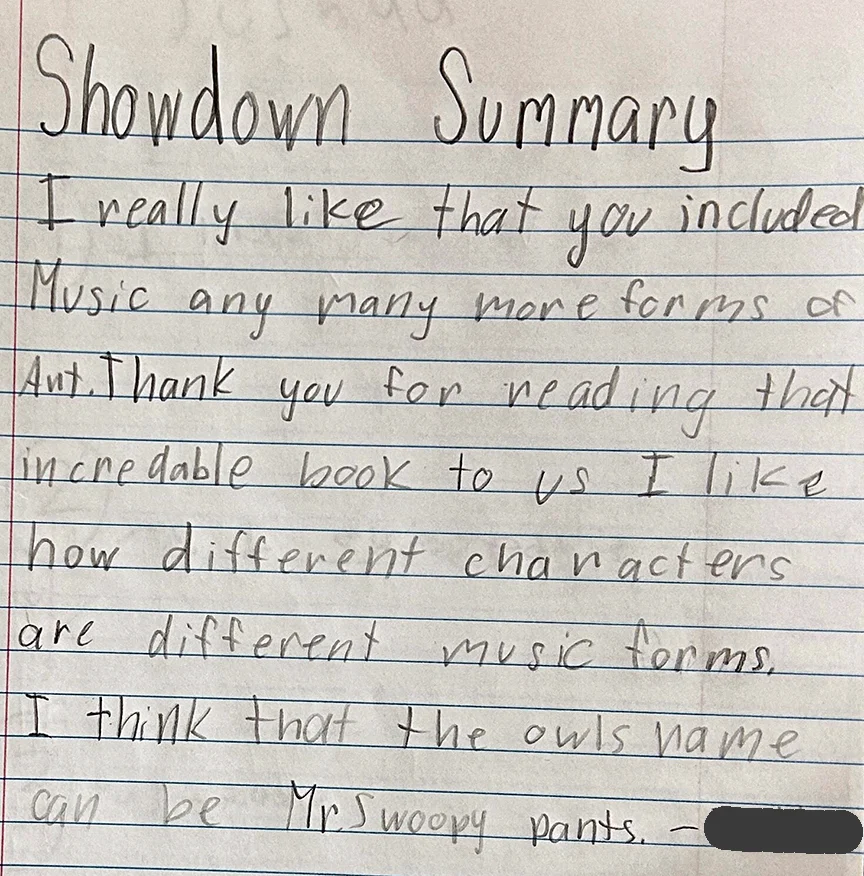 Showdown Summary
I really like that you included
Music any many more forms of
Art. Thank you for reading that
incredable book to us I like
how different characters
are different music forms.
I think that the owls name
can be Mr. Swoopy pants. -